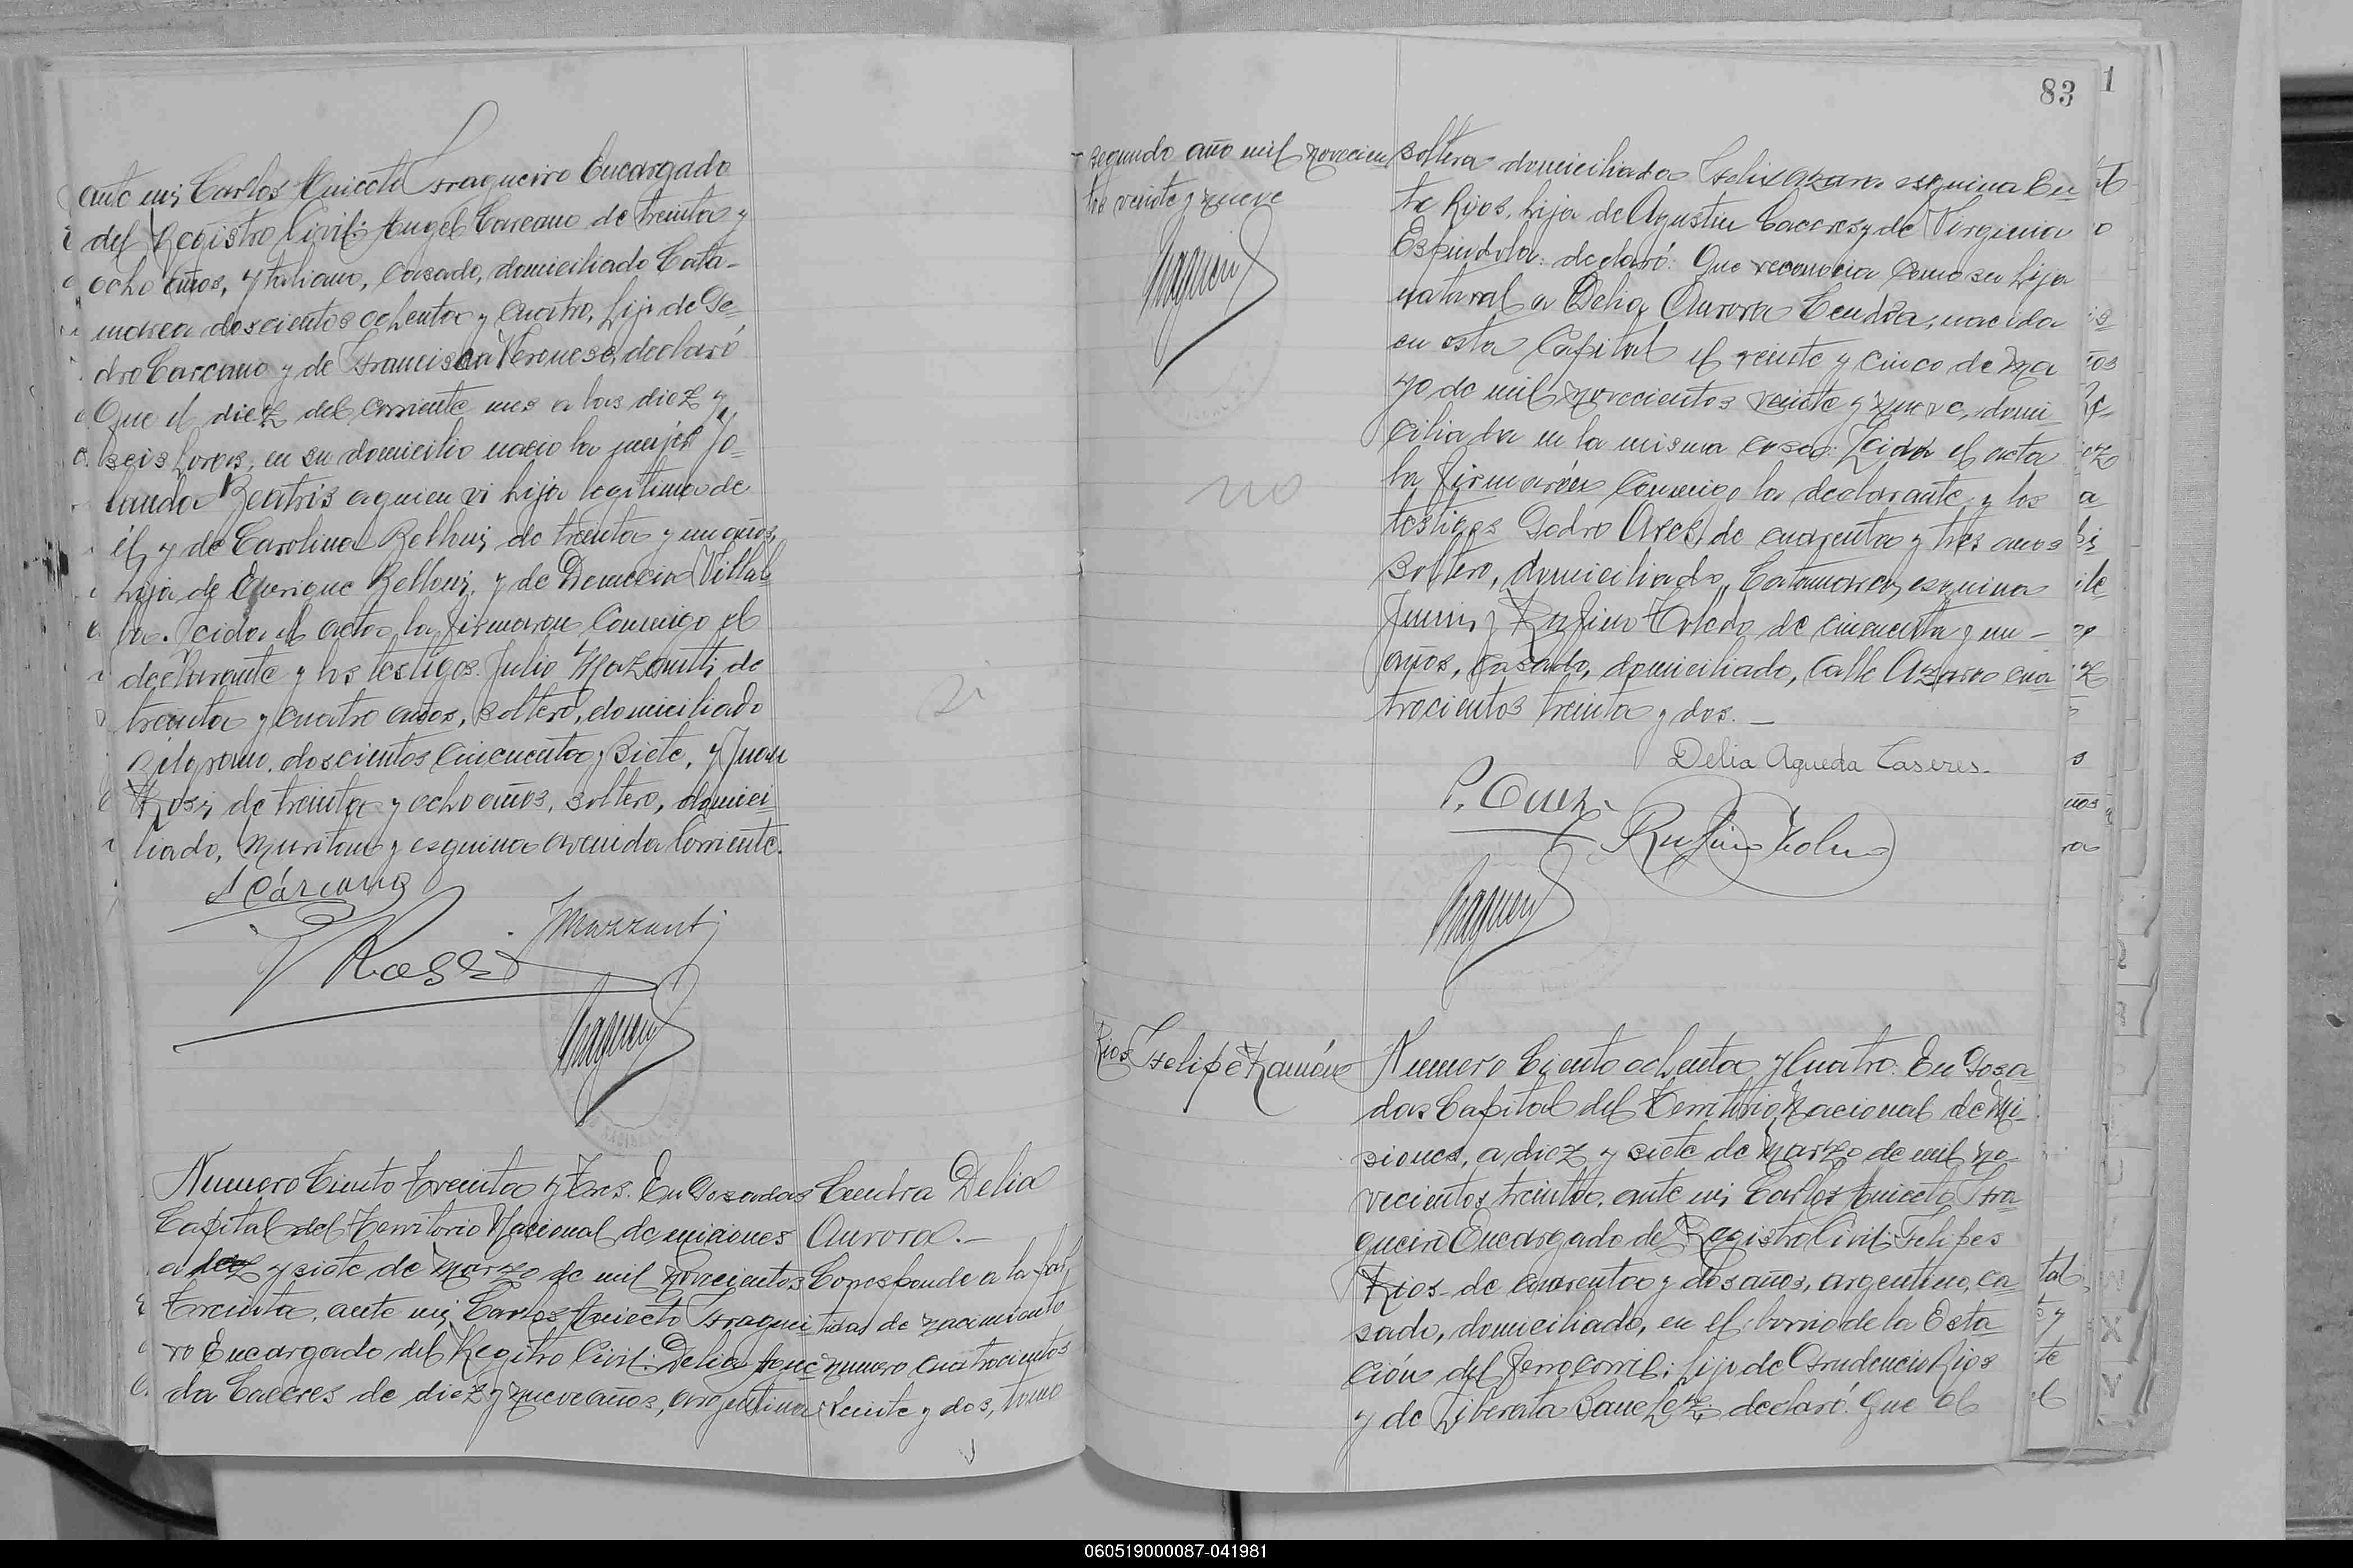 ante mi, Carlos Aniceto Fragueiro Encargado
del Registro Civil: Angel Carcano de treinta y
ocho años, ytaliano, casado, domiciliado Cata-
marca doscientos ochenta y cuatro, hijo de Pe-
dro Carcano y de Francisca Veronese, declaró
Que el diez del corriente mes a las diez y
seis horas, en su domicilio nacio la mujer Yo-
landa Beatris a quien vi hija legitima de
él y de Carolina Belloni, de treinta y un años,
hija de Enrique Belloni, y de Villal
ba. Leida el acta la firmaron conmigo el
declarante y los testigos Julio Mazanti, de
treinta y cuatro años, soltero, domiciliado
doscientos cincuenta y siete, y Juan
Rosi, de treinta y ocho años, soltero, domici
liado, y esquina avenida Corriente.
A Cárcano
J Mazzanti
J Rossi
Numero Ciento treinta y tres. En Posadas
Capital del Territorio Nacional de misiones
a diez y siete de Marzo de mil novecientos
treinta, ante mi, Carlos Aniceto Fraguei
ro Encargado del Registro Civil: Delia Ague
da Caceres de diez y nueve años, argentina
Cendra Delia
Aurora.-
Corresponde a la par
tidas de nacimiento
numero cuatrocientos
veinte y dos, tomo
83
1
segundo año mil novecien
tos veinte y nueve
no
soltera domiciliada Felix Azara esquina En
tre Rios, hija de Agustin Caceres y de Virginia
Espindola: declaró: Que reconocia como su hija
natural a Delia Aurora Cendra, nacida
en esta Capital el veinte y cinco de Ma
yo de mil novecientos veinte y nueve, domi
ciliada en la misma casa: Leida el acta
la firmarón conmigo la declarante y los
testigos Pedro de cuarenta y tres años
soltero, domiciliado, Catamarca, esquina
Junin, y Rufino Toledo de cincuenta y un -
años, casado, domiciliado, Calle Azara cua
trocientos treinta y dos. -
Delia Agueda Caseres.
Rufino Toledo
Rios Felipe Ramón
Numero Ciento ochenta y Cuatro. En Posa
das Capital del Territorio Nacional de Mi-
siones, a diez y siete de Marzo de mil no-
vecientos treinta, ante mi, Carlos Aniceto Fra
gueiro Encargado del Registro Civil: Felipes
Rios de cuarenta y dos años, argentino, ca
sado, domiciliado, en el barrio de la Esta
ción del ferrocarril; hijo de Prudencio Rios
y de Liberata Sanchez; declaró: Que el
060519000087-041981